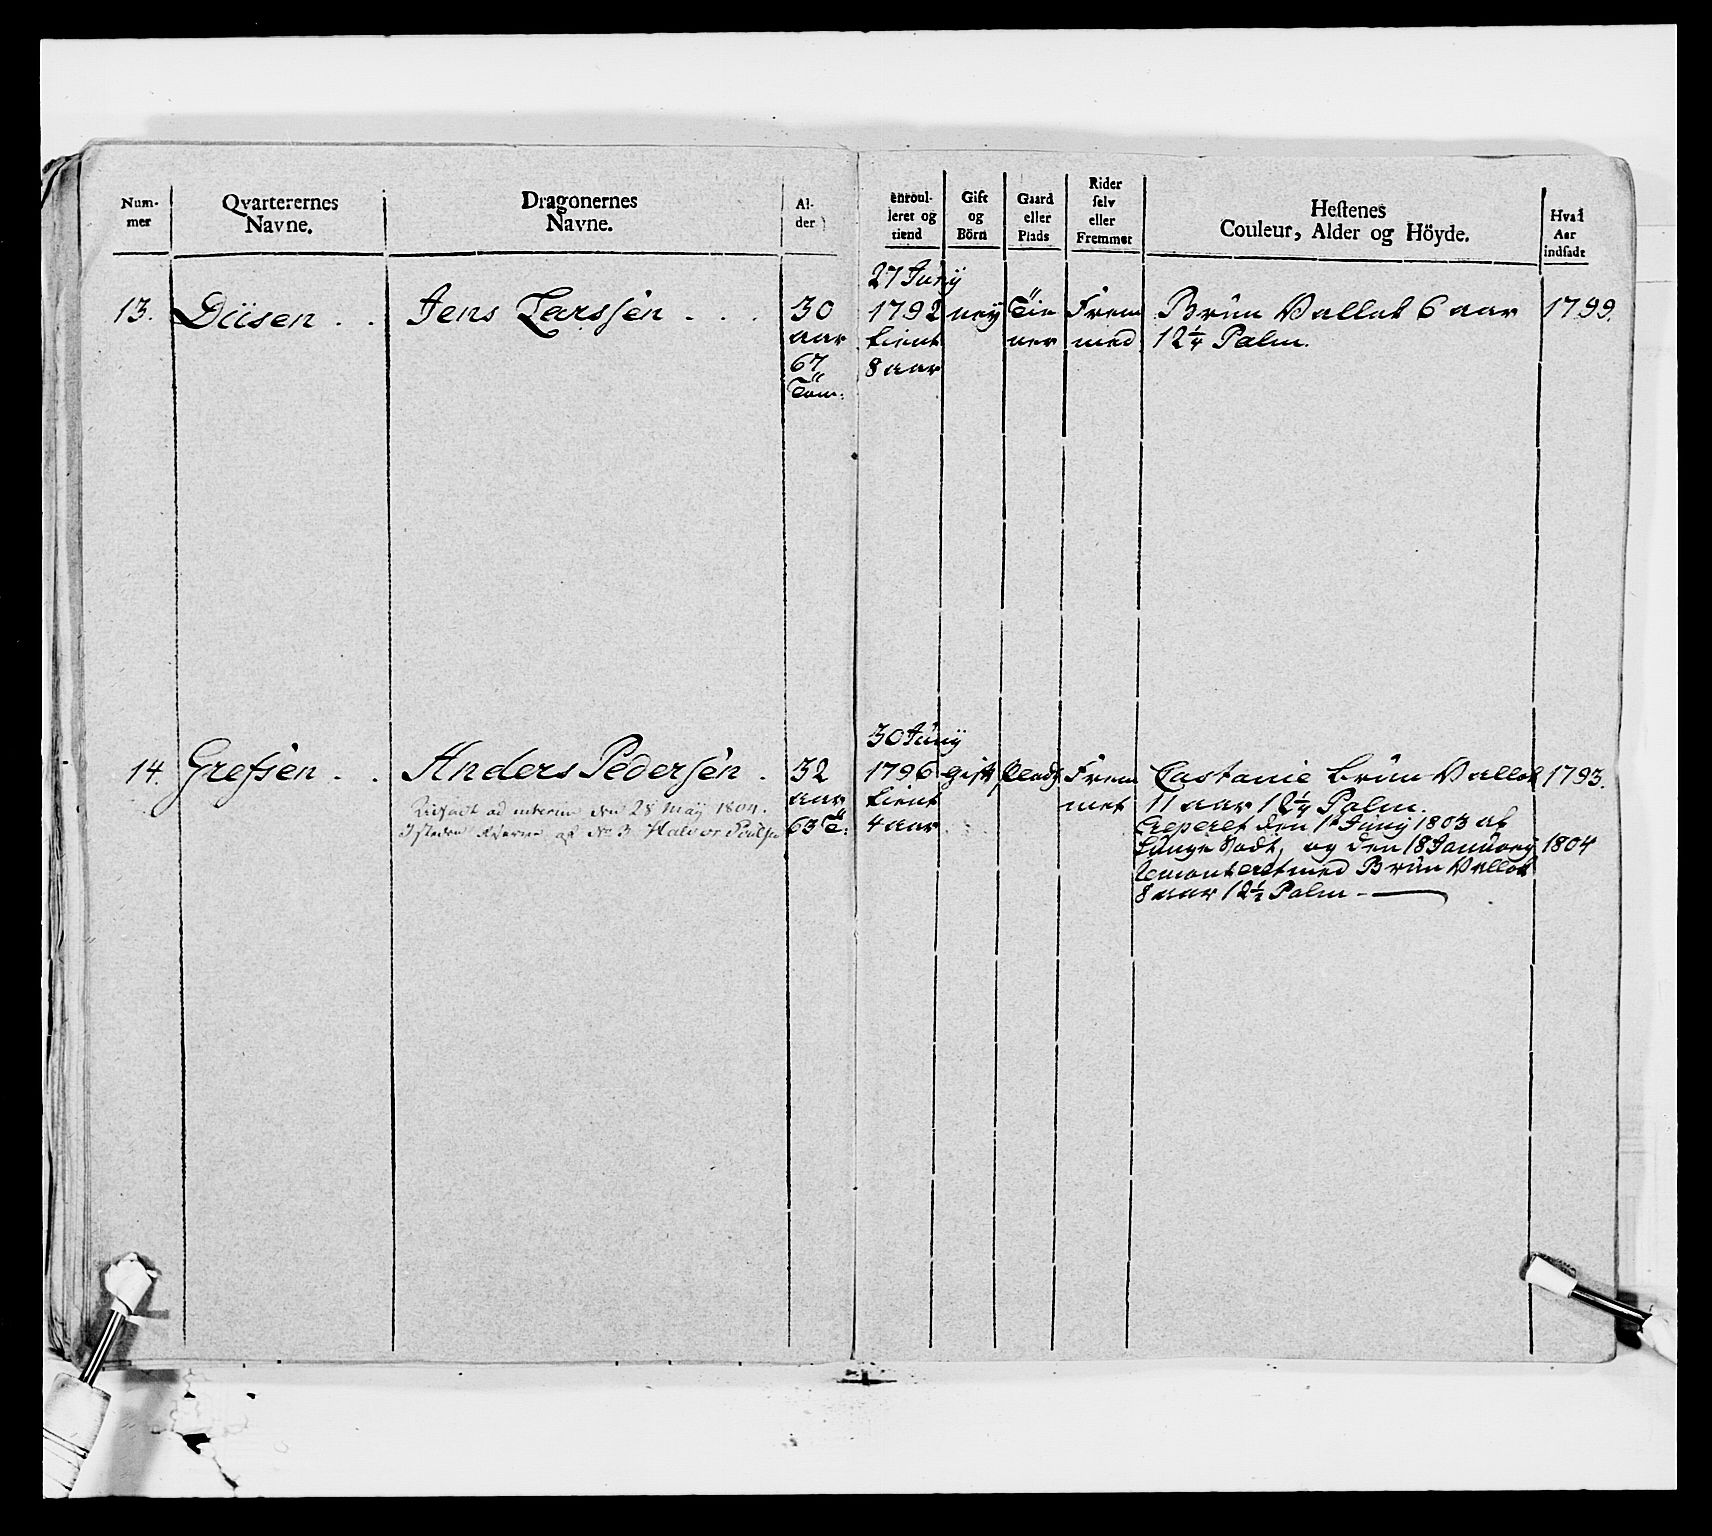 Num-
mer
Qvarterernes
Navne.
Dragonernes
Navne.
Al-
der
enroul-
leret og
tiend
Gift
og
Börn
Gaard
eller
Plads
Rider
selv
eller
Fremmet
Hestenes
Couleur, Alder og Höyde.
Hvad
Aar
indsadt
13. Diisen . . Jens Larssen . . . 30
aar
67
Tom:
27 Juny
1792
tient
8 aar
ney
Tie
ner
Frem
med
Brun Vallak 6 aar
12¼ Palm.
1799.
14. Grefsen . . Anders Pedersen .
ad interim den 28 May 1804.
af No 3 Halvor
32
aar
63 T:
30 Juny
1796
tient
4 aar
gift
Plads
Frem
met
Castanie brun Vallak
11 aar 12¼ Palm.
Creperet den 1te Juny 1803 af
Lunge Sodt, og den 18 January
Remonteret med Brun Vallak
8 aar 12½ Palm
1793.
1804